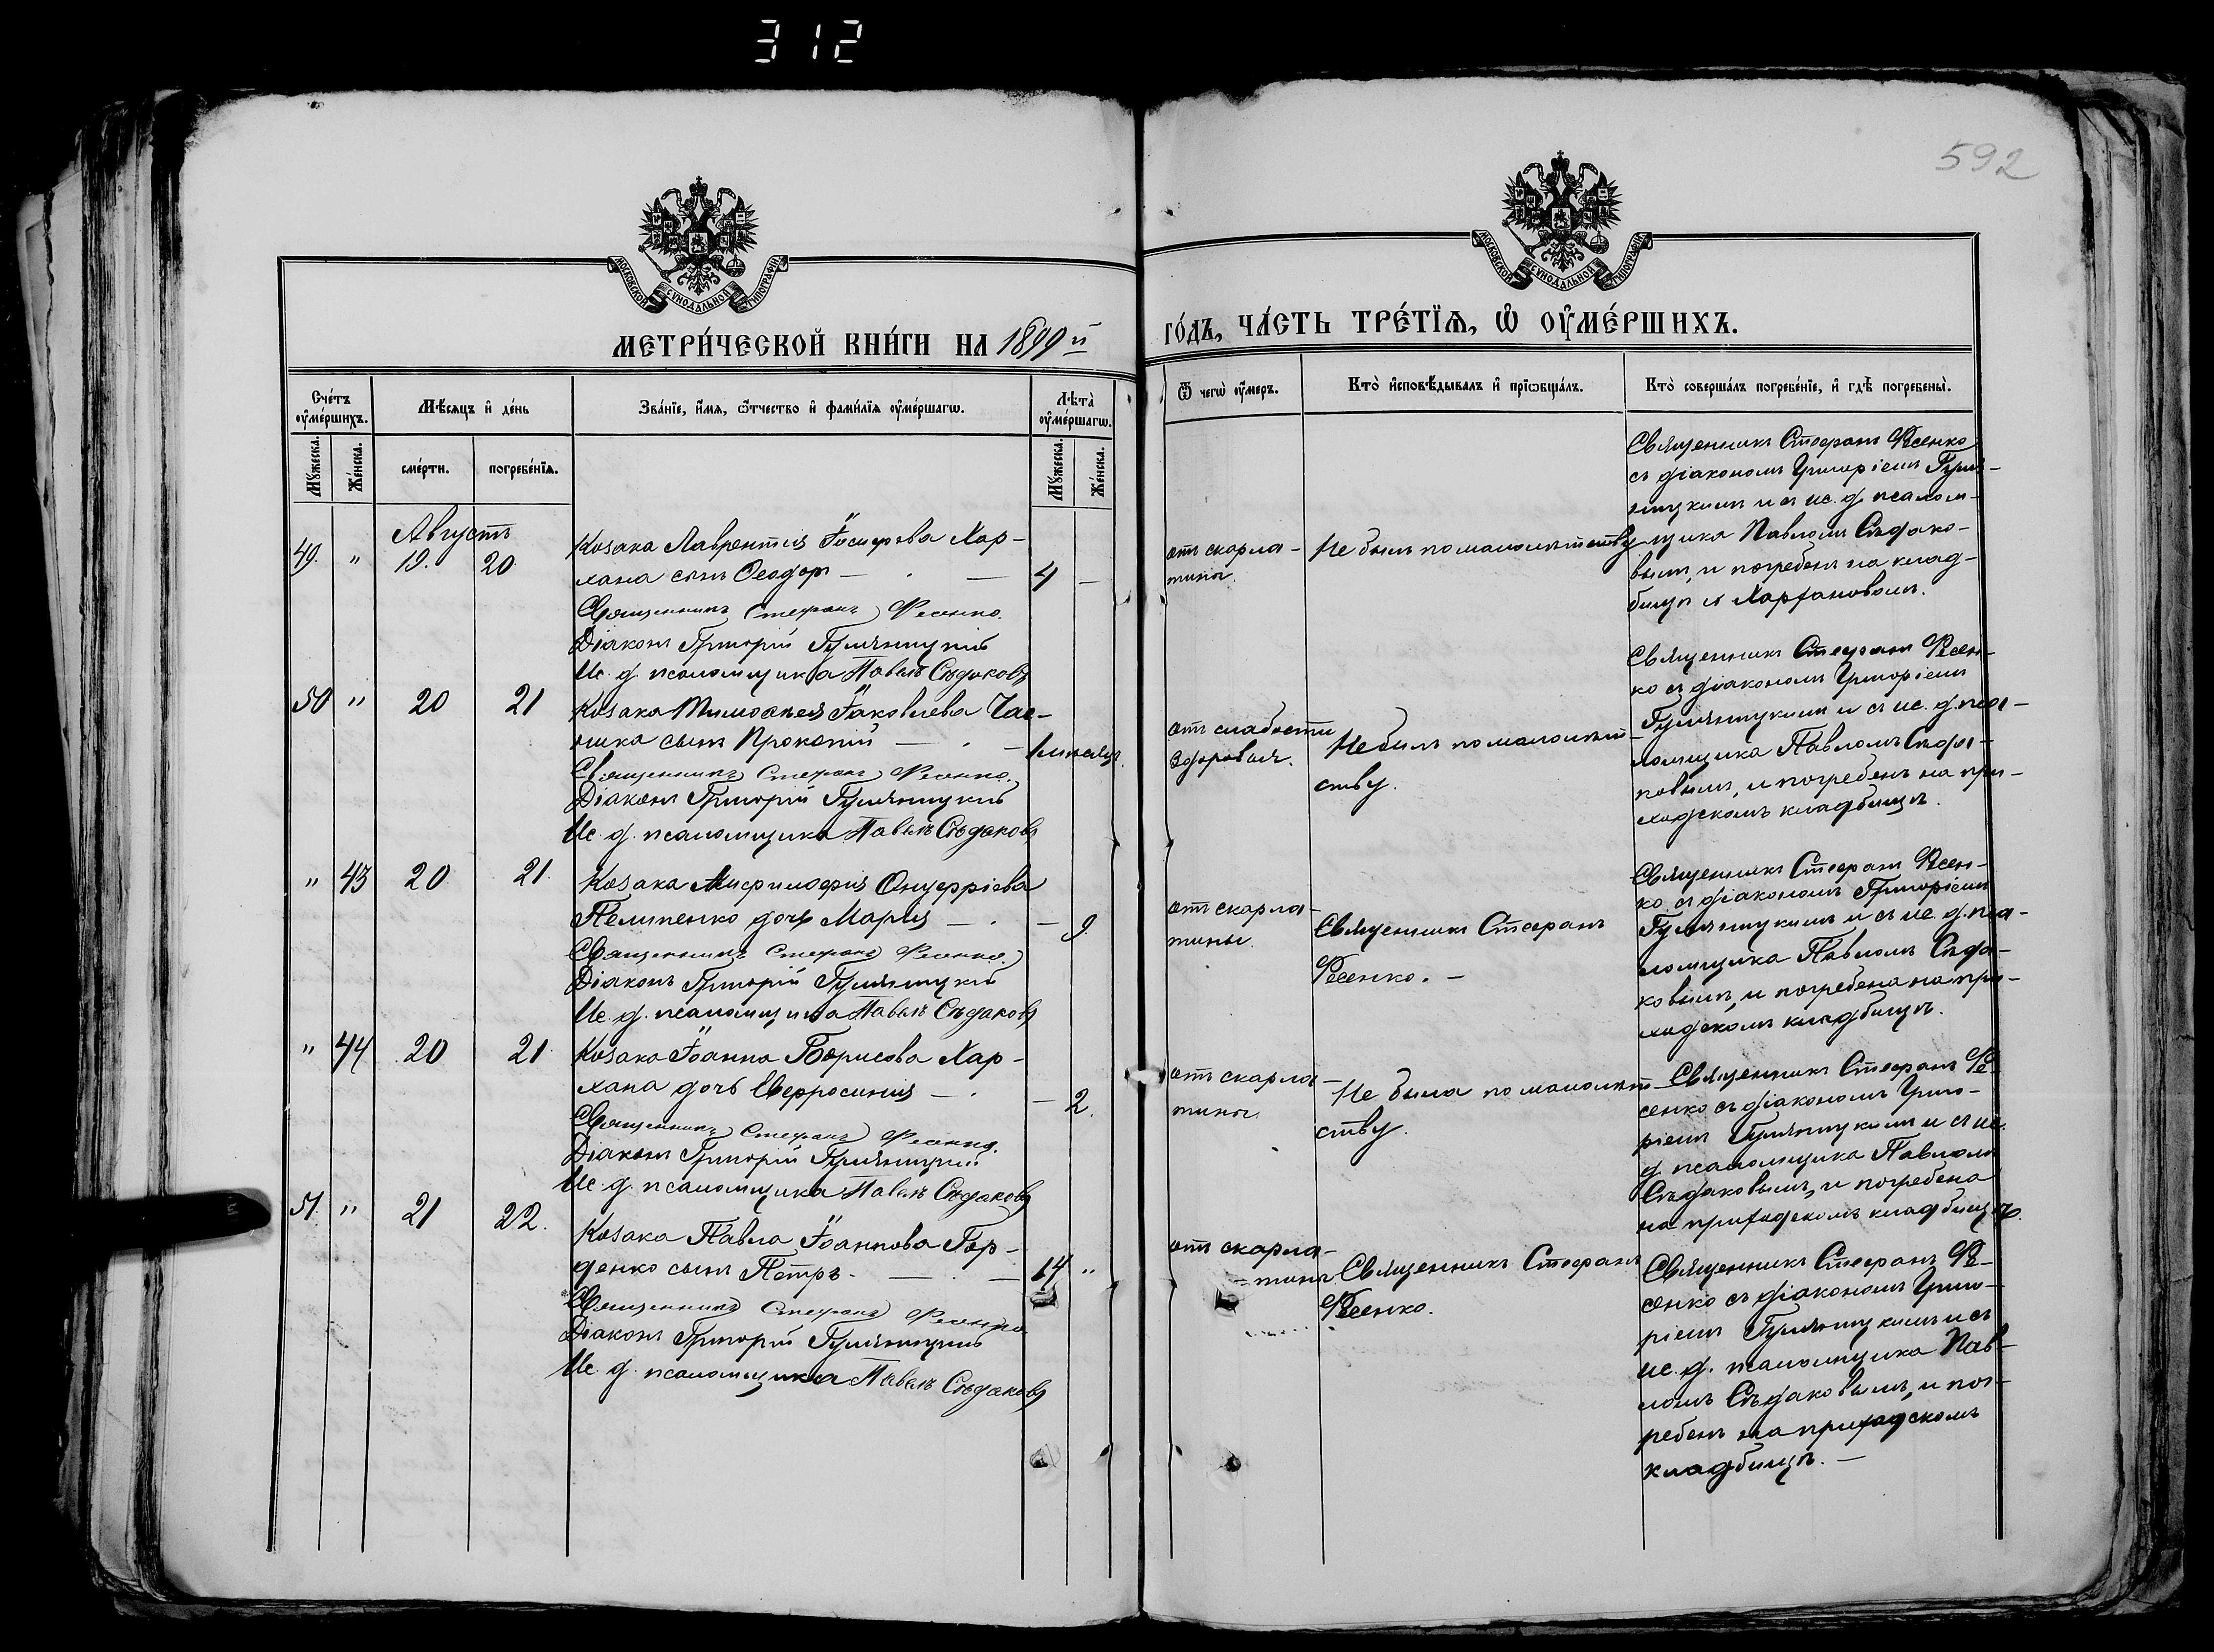 312
592
МОСКОВСКОЙ СѴНОДАЛЬНОЙ ТИПОГРАФІИ
МОСКОВСКОЙ СѴНОДАЛЬНОЙ ТИПОГРАФІИ
МЕТРИ́ЧЕСКОЙ КНИ́ГИ НА 1899 й
ГО́ДЪ, ЧА́СТЬ ТРЕ́ТЇѦ, Ѡ҆ ОУ҆МЕ́РШИХЪ.
Сче́тъ оу҆ме́ршихъ.
Мѣ́сѧцъ и҆ де́нь
Зва́нїе, и҆́мѧ, ѻ҆́тчество и҆ фами́лїѧ оу҆ме́ршагѡ.
Лѣ́та оу҆ме́ршагѡ.
Мꙋ́жеска.
Же́нска.
сме́рти.
погребе́нїѧ.
Мꙋ́жеска.
Же́нска.
Ѿ чегѡ̀ оу҆́меръ.
Кто̀ и҆сповѣ́дывалъ и҆ прїѡбща́лъ.
Кто̀ соверша́лъ погребе́нїе, и҆ гдѣ̀ погребены̀.
Августъ
49. " 19. 20
Козака Лаврентія Іосифова Хар-
хана сынъ Ѳеодоръ — 4 —
Священникъ Стефанъ Фесенко.
Діаконъ Григорій
Ис. д. псаломщика Павелъ Сѣдаковъ
отъ скарла-
тины.
Не былъ по малолѣтству
Священникъ Стефанъ Фесенко
съ діакономъ Григоріемъ
и съ ис. д. псалом-
щика Павломъ Сѣдако-
вымъ, и погребенъ на клад-
бищѣ
50 " 20 21
Козака Тимоѳея Іаковлева
сынъ Прокопій — 1 мѣсяцъ.
Священникъ Стефанъ Фесенко.
Діаконъ Григорій
Ис. д. псаломщика Павелъ Сѣдаковъ
отъ слабости
здоровья.
Не былъ по малолѣт-
ству.
Священникъ Стефанъ Фесен-
ко съ діакономъ Григоріемъ
и съ ис. д. пса-
ломщика Павломъ Сѣда-
ковымъ, и погребенъ на при-
ходскомъ кладбищѣ.
" 43 20 21.
Козака Онуфріева
дочь Марія — 9.
Священникъ Стефанъ Фесенко.
Діаконъ Григорій
Ис. д. псаломщика Павелъ Сѣдаковъ
отъ скарла-
тины.
Священникъ Стефанъ
Фесенко. —
Священникъ Стефанъ Фесен-
ко съ діакономъ Григоріемъ
и съ ис. д. пса-
ломщика Павломъ Сѣда-
ковымъ, и погребена на при-
ходскомъ кладбищѣ.
" 44 20 21
Козака Іоанна Борисова Хар-
хана дочь Евфросинія — 2.
Священникъ Стефанъ Фесенко.
Діаконъ Григорій
Ис. д. псаломщика Павелъ Сѣдаковъ
отъ скарла-
тины.
Не была по малолѣт-
ству.
Священникъ Стефанъ Фе-
сенко съ діакономъ Григо-
ріемъ и съ ис.
д. псаломщика Павломъ
Сѣдаковымъ, и погребена
на приходскомъ кладбищѣ.
51. " 21 22.
Козака Павла Іоаннова Гор-
денко сынъ Петръ. — 14 "
Священникъ Стефанъ Фесенко
Діаконъ Григорій
Ис. д. псаломщика Павелъ Сѣдаковъ
отъ скарла-
тины.
Священникъ Стефанъ
Фесенко.
Священникъ Стефанъ Фе-
сенко съ діакономъ Григо-
ріемъ и съ
ис. д. псаломщика Пав-
ломъ Сѣдаковымъ, и пог-
ребенъ на приходскомъ
кладбищѣ. —